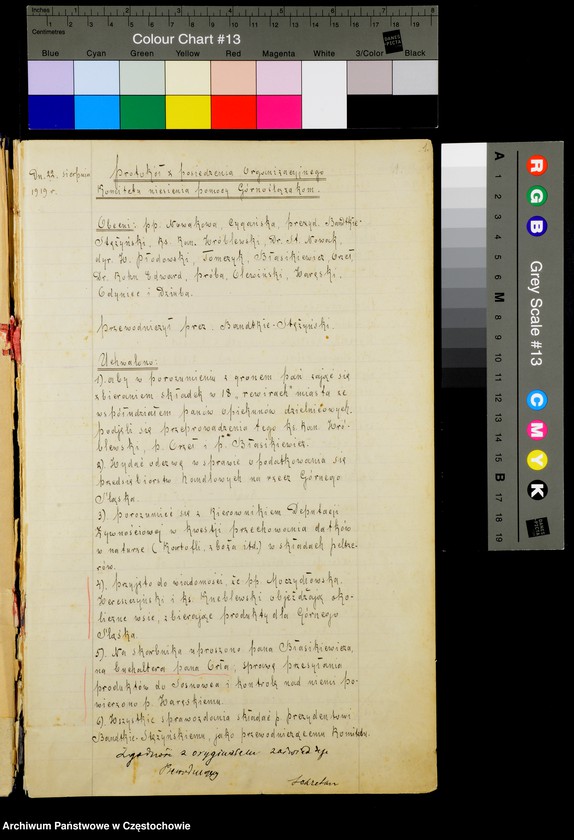 Inches 1 2 3 4 5 6 7 8
Centimetres 1 2 3 4 5 6 7 8 9 10 11 12 13 14 15 16 17 18 19
Colour Chart #13
Blue Cyan Green Yellow Red Magenta White 3/Color Black
DANES PICTA
1.
Dn. 22. sierpnia
1919 r.
Protokół z posiedzenia Organizacyjnego
Komitetu niesienia pomocy Górnoślązakom.
Obecni: pp. Nowakowa, Cygańska, prezyd. Bandtkie-
Stężyński, ks. kan. Wróblewski, Dr. St. Nowak,
dyr. W. Płodowski, Tomczyk, Błasikiewicz, Orzeł,
Dr. Kohn Edward, Próba, Olewiński, Waręski,
Gdyniec i Dziuba.
Przewodniczył prez. Bandtkie-Stężyński.
Uchwalono:
1). aby w porozumieniu z gronem pań zająć się
zbieraniem składek w 18 "rewirach" miasta ze
współudziałem panów opiekunów dzielnicowych.
podjęli się przeprowadzenia tego ks. kan. Wró-
blewski, p. Orzeł i p. Błasikiewicz.
2). Wydać odezwę w sprawie opodatkowania się
przedsiębiorstw handlowych na rzecz Górnego
Śląska.
3) porozumieć się z kierownikiem Deputacji
Żywnościowej w kwestji przechowania datków
w naturze (Kartofli, zboża itd.) w składach peltze-
rów.
4). przyjęto do wiadomości, że pp. Moczydłowska,
i ks. Kneblewski objeżdżają oko-
liczne wsie, zbierając produkty dla Górnego
Śląska.
5). Na skarbnika uproszono pana Błasikiewicza,
na buchaltera pana Orła, sprawę przesyłania
produktów do Sosnowca i kontrolę nad niemi po-
wierzono p. Waręskiemu.
6). Wszystkie sprawozdania składać p. prezydentowi
Bandtkie-Stężyńskiemu, jako przewodniczącemu Komitetu.
Zgodność z oryginałem zaświadcza
Przewodniczący
Sekretarz
Grey Scale #13
A 1 2 3 4 5 6 M 8 9 10 11 12 13 14 15 B 17 18 19
R
G
B
C
M
Y
K
DANES PICTA
Archiwum Państwowe w Częstochowie